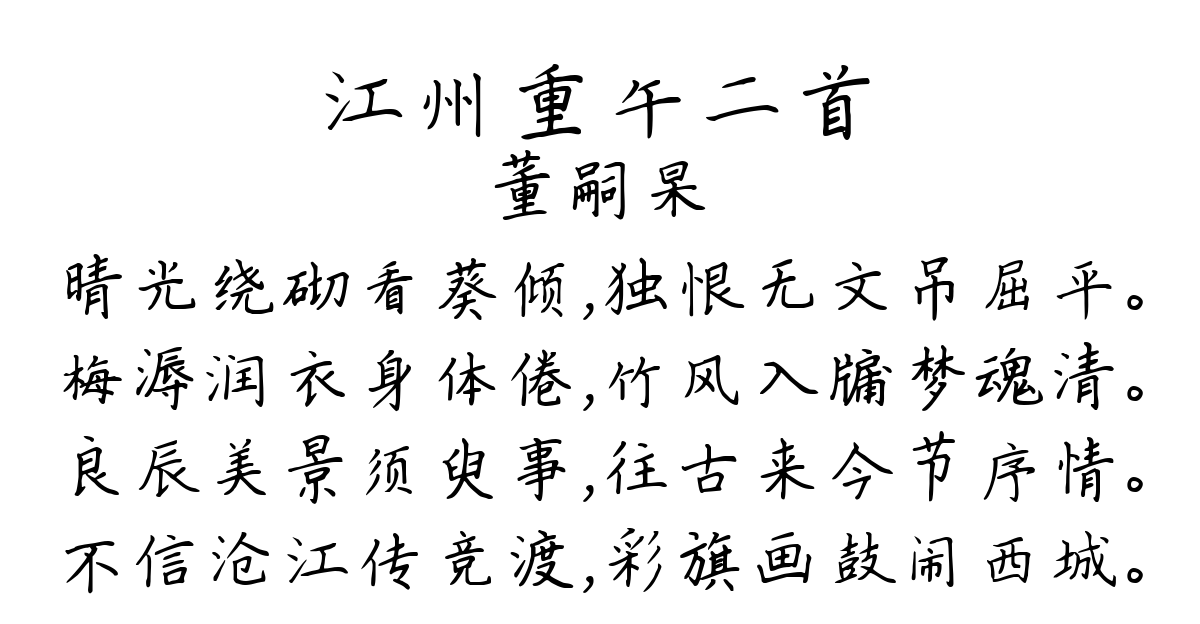 江州重午二首
董嗣杲
晴光绕砌看葵倾,独恨无文吊屈平。
梅溽润衣身体倦,竹风入牖梦魂清。
良辰美景须臾事,往古来今节序情。
不信沧江传竞渡,彩旗画鼓闹西城。